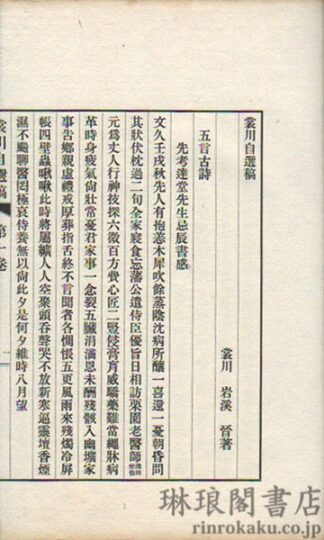 裳川自選稿
裳川 岩溪 晉著
五言古詩
先考達堂先生忌辰書感
文久壬戌秋先人有抱恙木犀吹餘蒸陰沈病所釀一喜還一憂朝昏問
其狀伏枕過二旬全家寢食忘藩公遣侍臣優旨日相訪栗園老醫師
元爲丈人行神技探六微百方費心匠二豎侵膏肓威驕藥難當繩牀病
革時身疲氣尙壯常憂君家事一念裂五臟涓滴恩未酬殘骸入幽壙家
事吿鄕親虛禮戒厚葬指舌終不言聞者各惆悵五更風雨來殘燭冷屛
帳四壁蟲啾啾此時將屬纊人人空聚頭呑聲哭不放新寒逼靈壇香煙
濕不颺聊醫罔極哀侍養無以尙此夕是何夕維時八月望
裳川自選稿 第一卷 一
琳琅閣書店
rinrokaku.co.jp